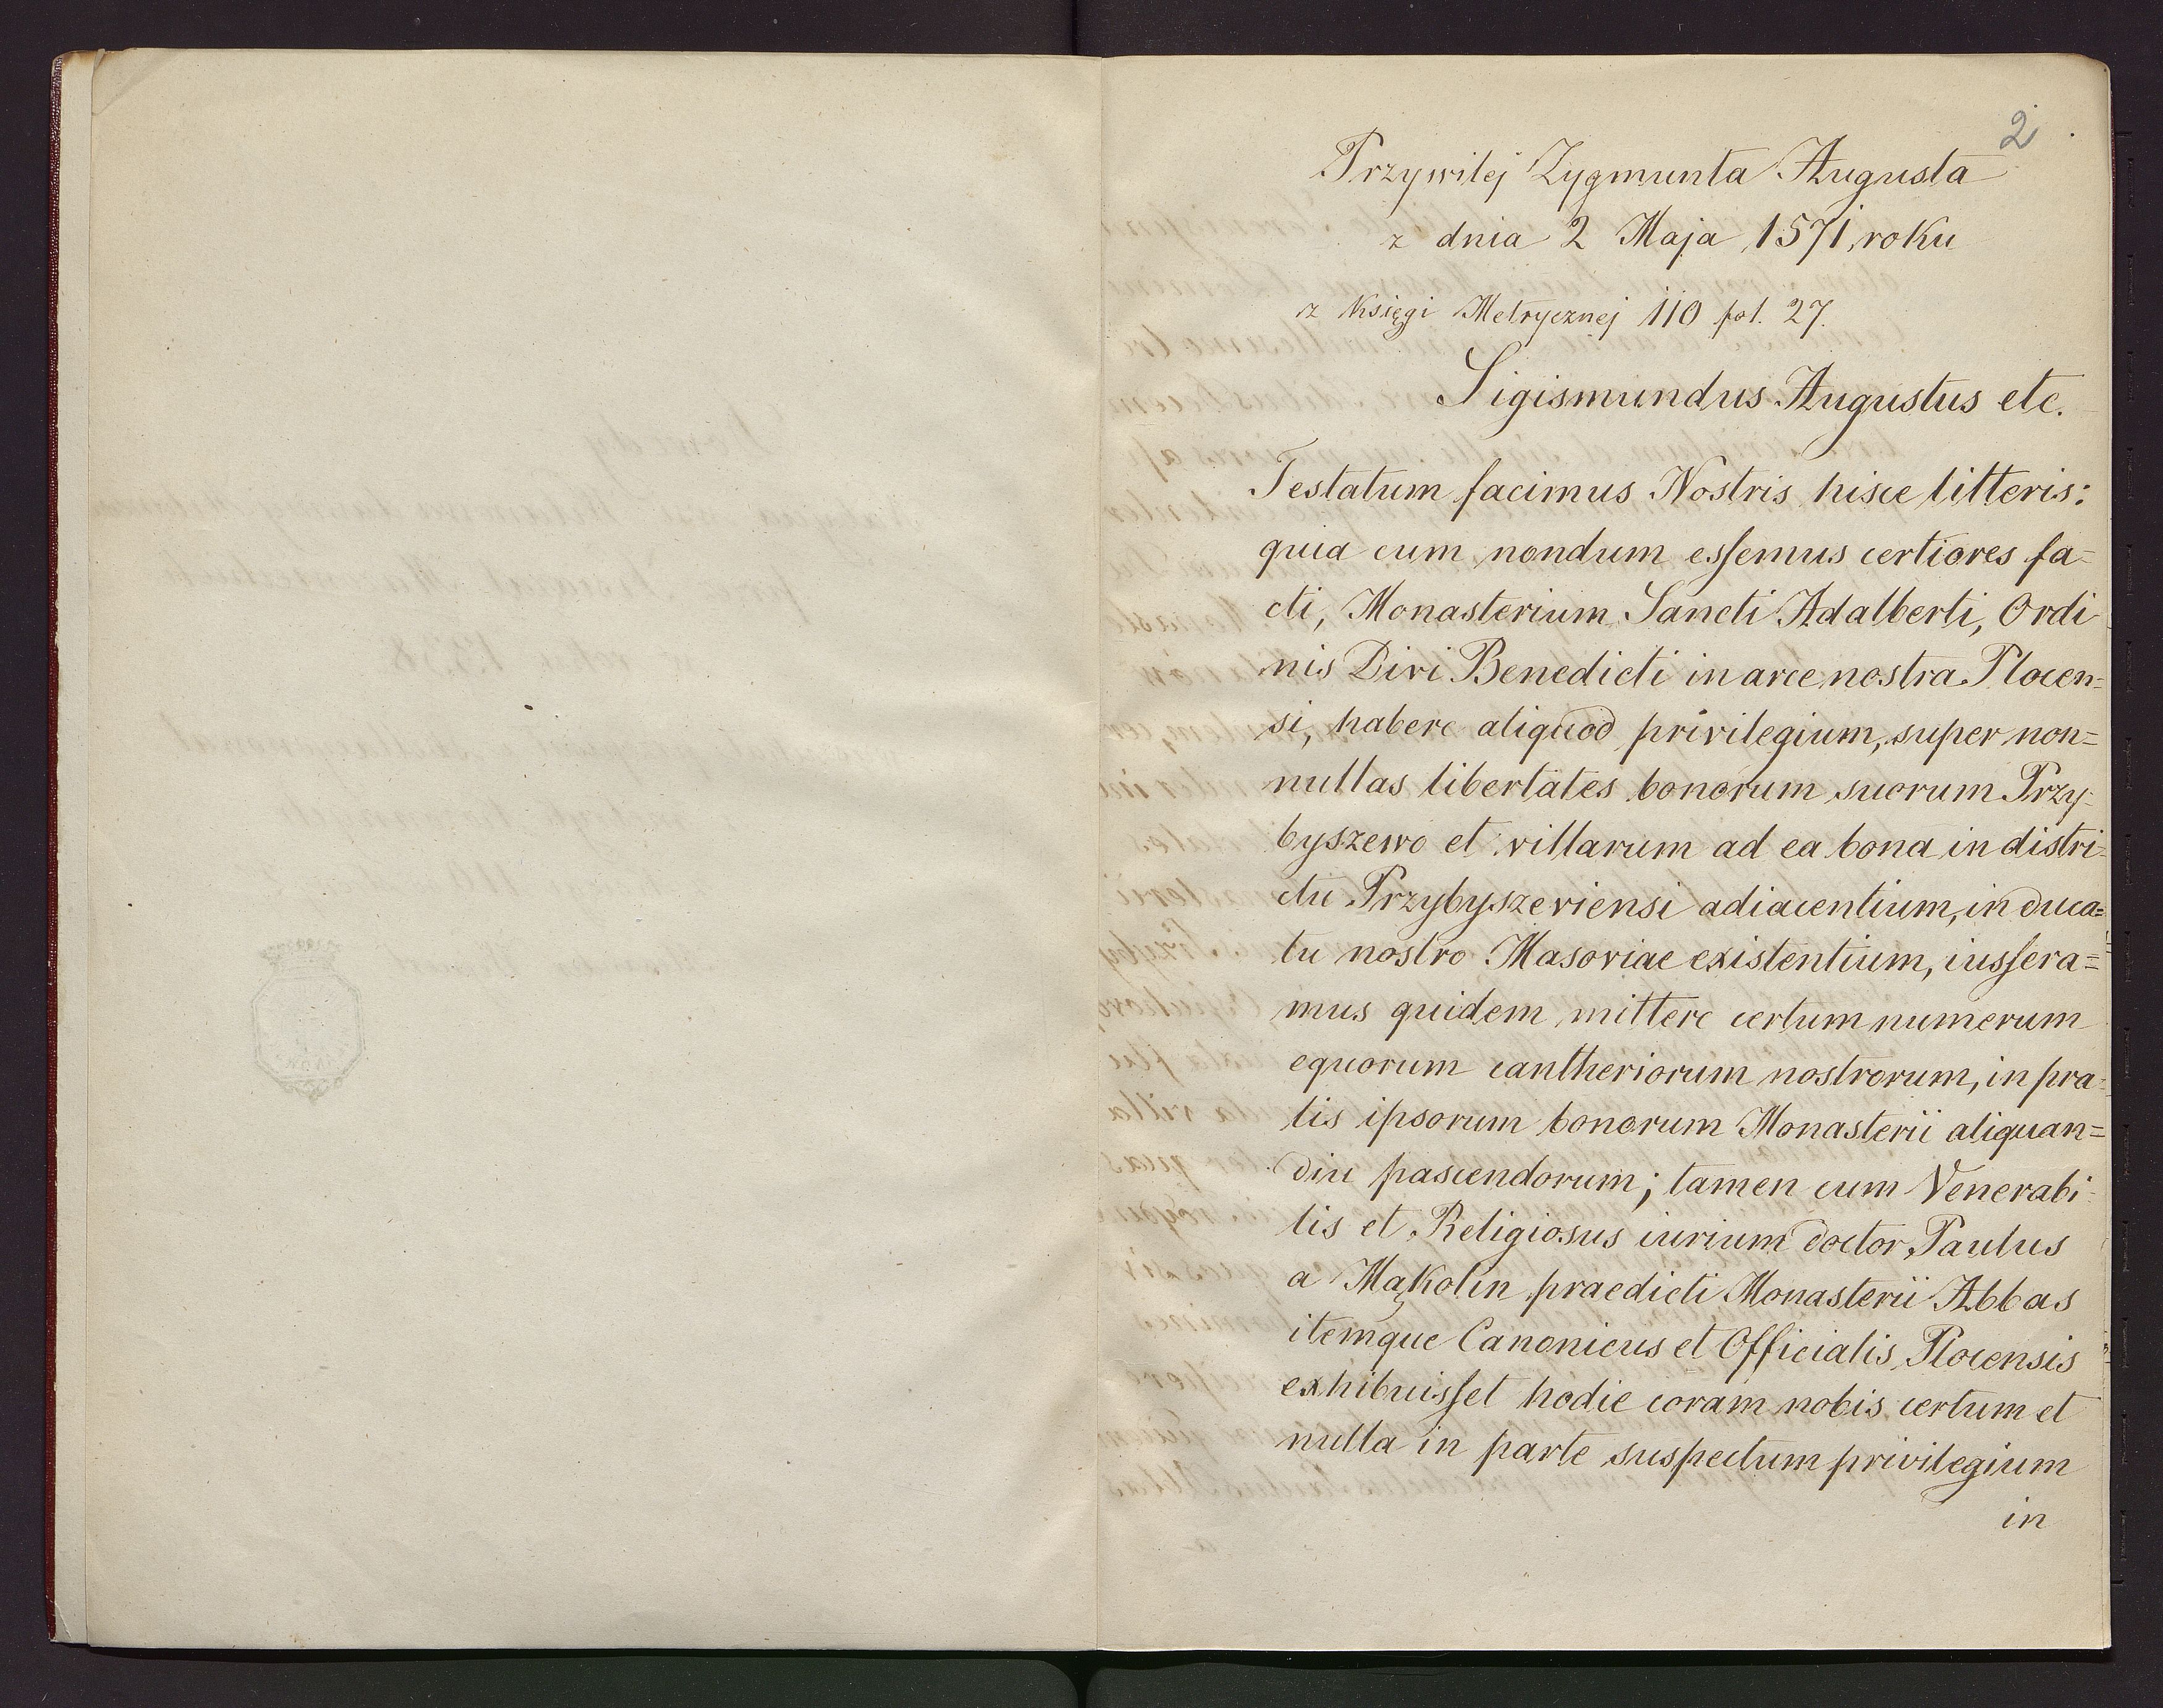 2
Przywilej Zygmunta Augusta
z dnia 2 Maja 1571 roku
z Księgi Metrycznej 110 fol. 27.
Sigismundus Augustus etc.
Testatum facimus Nostris hisce litteris:
quia cum nondum eſsemus certiores fa=
cti, Monasterium Sancti Adalberti, Ordi-
nis Divi Benedicti in arce nostra Plocen=
si, habere aliquod privilegium, super non=
nullas libertates bonorum suorum Przy-
byszewo et villarum ad ea bona in distri-
ctu Przybyszeviensi adiacentium, in duca=
tu nostro Masoviae existentium, iusſera=
mus quidem mittere certum numerum
equorum cantheriorum nostrorum, in pra-
tis ipsorum bonorum Monasterii aliquan=
diu pascendorum; tamen cum Venerabi-
lis et Religiosus iurium doctor, Paulus
a Mąkolin praedicti Monasterii Abbas
itemque Canonicus et Officialis Plocensis
exhibuisſet hodie coram nobis certum et
nulla in parte suspectum privilegium
in